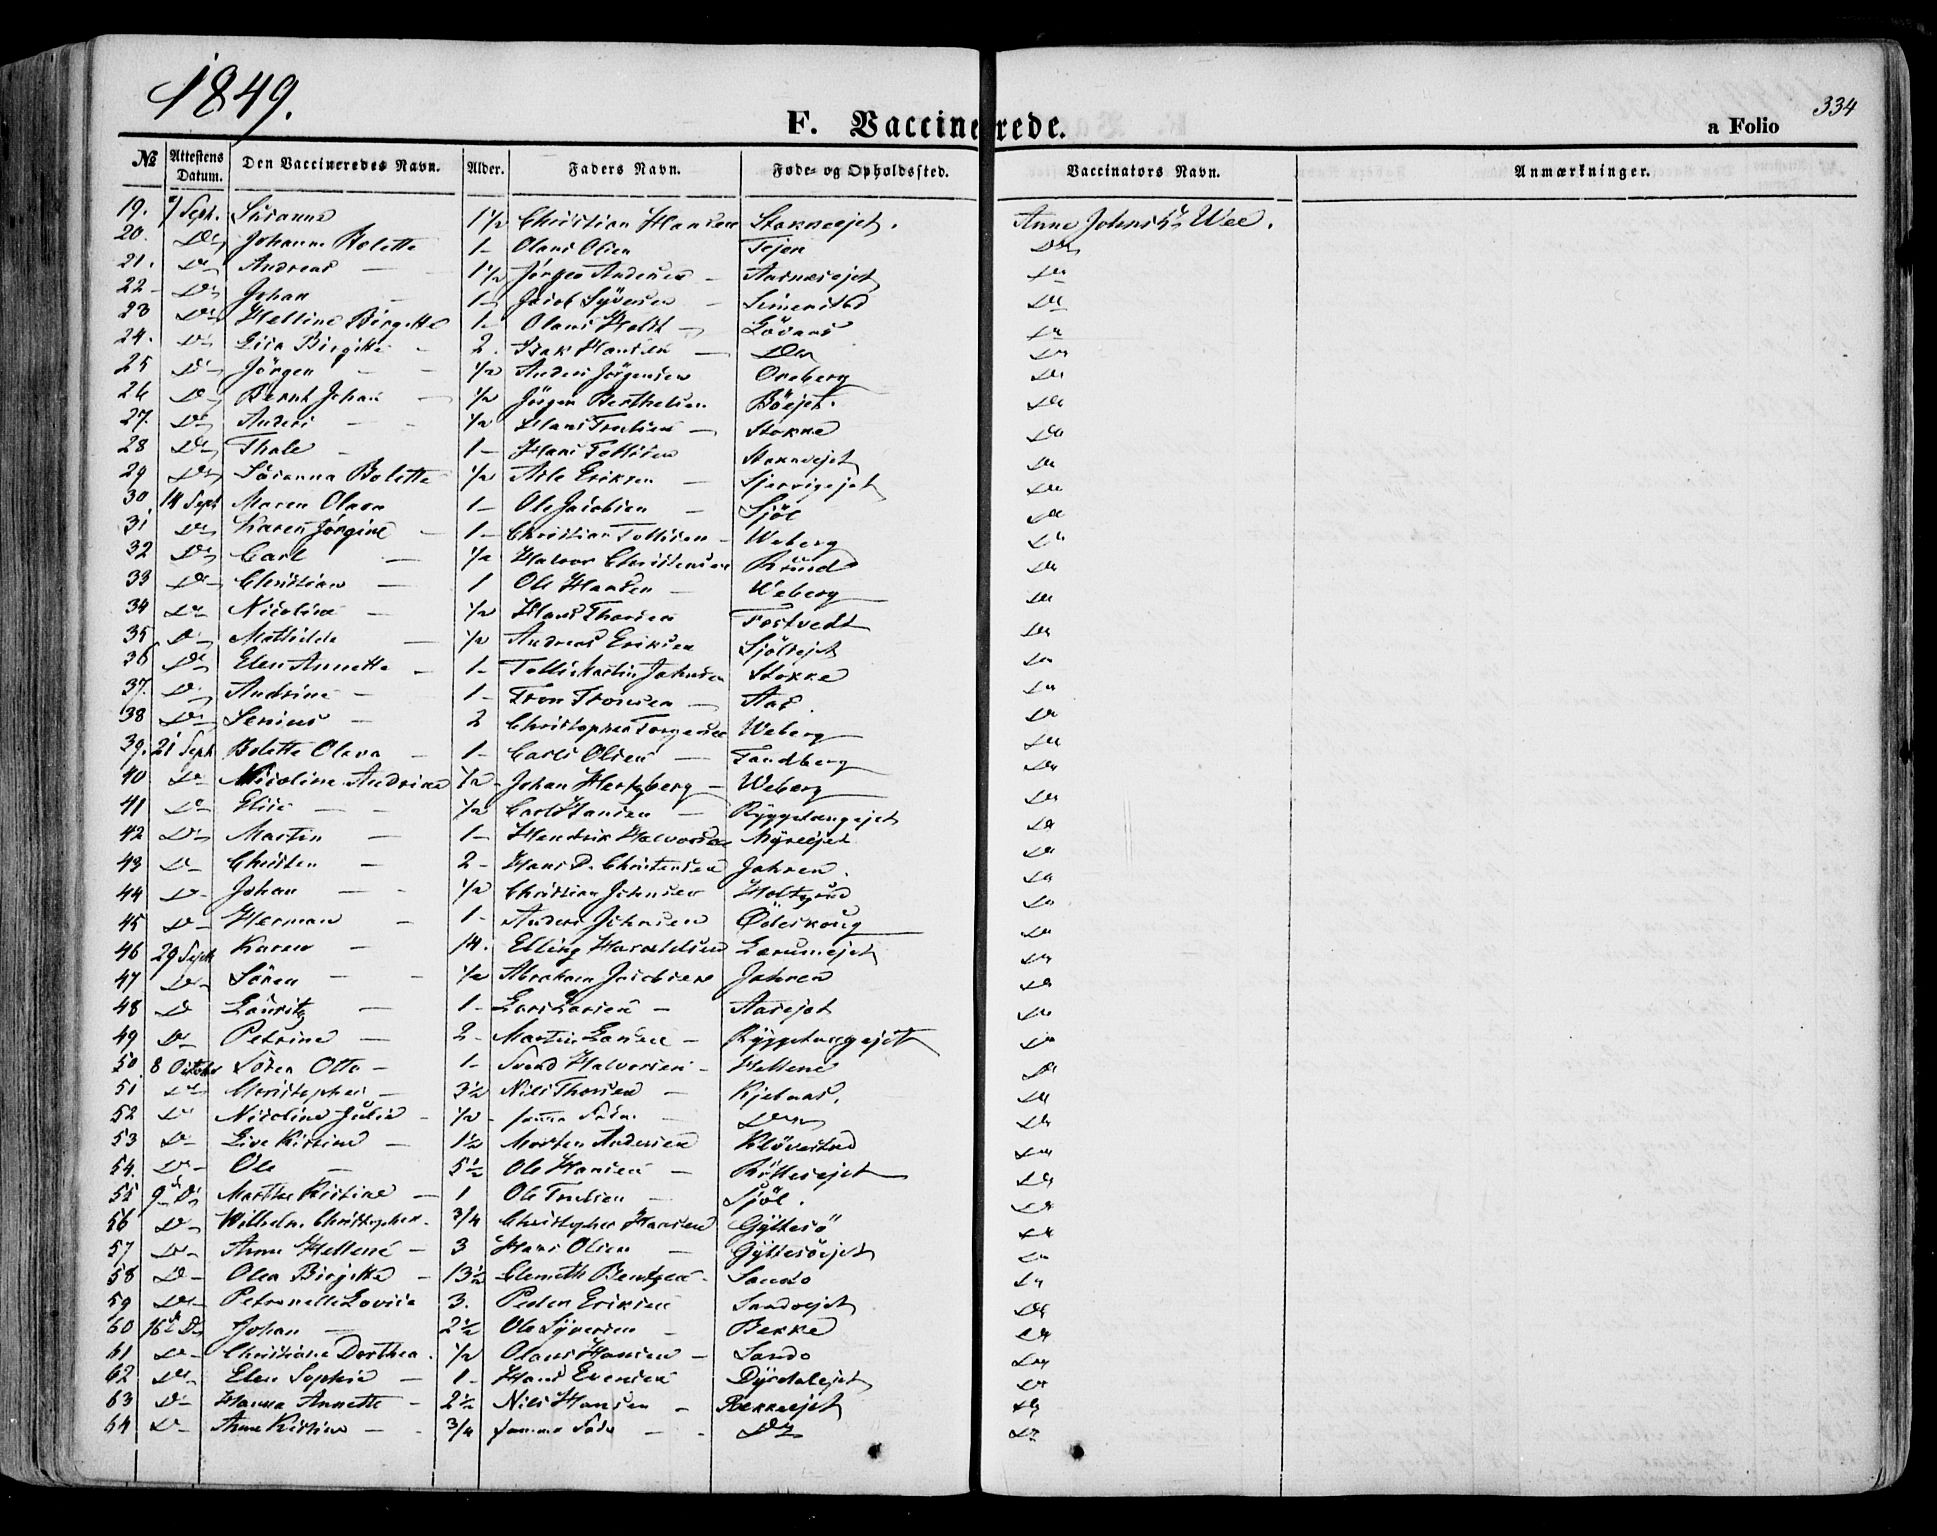 1849.
334
F. Vaccinerede.
a Folio
№ Attestens Datum. Den Vaccineredes Navn. Alder. Faders Navn. Føde- og Opholdssted. Vaccinators Navn. Anmærkninger.
19. 7 Sept. Susanne 1 1/2 Christian Hansen Stokkeejet. Anne Johnsdr Wee.
20. Do Johanne Bolette 1 - Olaus Olsen Tejen Do
21. Do Andreas — 1 1/2 Jørgen Andersen - Aasnæsejet Do
22 - Do Johan 1 - Jacob Syversen - Do
23 Do Helline Birgitte 1 - Olaus Holdt Do
24. Do Lisa Birgitte - 2. Isak Hansen — Do Do
25 Do Jörgen - 1/2 Anders Jörgensen Oreberg Do
26 Do Bernt Johan 1/2 Jörgen Berthelsen Böejet. Do
27. Do Anders - 1/2 Hans Trulsen — Stokke Do
28 Do Thale - 1 - Hans Tollisen Stokkeejet Do
29 Do Susanna Bolette 1/2 Asle Eriksen — Do
30 14 Sept Maren Olava 1 - Ole Jacobsen - Sjöl Do
31 Do Karen Jörgine - 1 - Christian Tollisen - Weberg Do
32 Do Carl — 1/2 Halvor Christensen Do
33 Do Christian — 1 Ole Hansen - Weberg Do
34 Do Nicoline - 1/2 Hans Thorsen Fostvedt Do
35 Do Mathilde — 1/2 Andreas Eriksen Sjölsejet Do
36 Do Elen Annette - 1 - Tollis Martin Johnsen Stokke Do
37. Do Andrine - 1 - Tron Tronsen — Aas. Do
38 Do Senius - 2 Christopher Torgersen Weberg Do
39. 21 Sept Bolette Olava - 1 - Carls Olsen — Fandberg Do
40 Do Nicoline Andrine 1/2 - Johan Hertzberg - Weberg Do
41 Do Elise - 1/2 Carl Hansen - Ryggetangejet Do
42 Do Martin — 1 - Hendrik Halvorsen Myreejet Do
43 Do Christen - 2 - Hans D. Christensen Jahren. Do
44 Do Johan - 1/2 Christian Johnsen Holtgrud Do
45 Do Herman - 1 - Anders Johnsen Ödeskoug Do
46 29 Sept Karen - 14. Elling Haraldsen Do
47 Do Sören - 1/2 Abraham Jacobsen Jahren Do
48 Do Lauritz — 1 - Lars Larsen - Aasejet Do
49 Do Petrine - 2 - Martin Larsen - Ryggetangejet Do
50. 8 October Sören Otto - 1 - Svend Halvorsen - Hellene Do
51 Do Christopher - 3 1/2 Nils Thorsen - Kjelnas. Do
52 Do Nicoline Julie - 1/2 - samme Fader Do Do
53 Do Live Kirstine - 1 1/2 Morten Andersen Klövestad Do
54. Do Ole - 5 1/2 Ole Hansen - Do
55 9de Ds Marthe Kirstine - 1 Ole Trulsen - Sjöl. Do
56 Do Wilhelm Christopher. 3/4 Christopher Hansen Gyltesö Do
57 Do Anne Hellene - 3 Hans Olsen — Gyltesöejet Do
58 Do Olea Birgitte - 13 1/2 Clemeth Bentzen - Sando Do
59 Do Petronelle Lovise 3. Peder Eriksen Sandoejet Do
60 16de Ds Johan - 2 1/2 Ole Syversen - Bekke Do
61 Do Christiane Dorthea. 1/2 Olaus Hansen - Sando Do
62 Do Elen Sophie - 1 - Hans Evensen Dyrdalejet Do
63 Do Hanna Annette - 2 1/2 Nils Hansen - Bekkeejet Do
64 Do Anne Kirstine - 3/4 samme Fader - Do Do